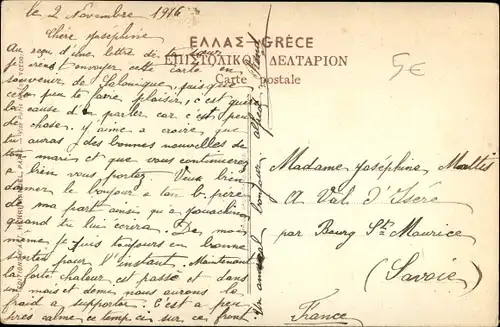 le 2 Novembre 1916
Chère Joséphine
Au reçu d'une lettre de ta sœur
je viens t'envoyer cette carte en
souvenir de Salonique, puisque
cela peu te faire plaisir, c'est guère
la cause d'en parler car c'est peu
de chose, j'aime a croire que
tu auras des bonnes nouvelles de
ton mari et que vous continuerez
a bien vous portez. Veux bien
donner le bonjour a ton b. père
de ma part ainsi qu'a Joachim
quand tu lui ecrira. De moi
même je suis toujours en bonne
santee pour l'instant. Maintenant
la forte chaleur est passé et dans
un mois et demi nous aurons le
froid a supporter. C'est a peu
près calme ce temp ci sur ce front
Un amical bonjour
ΕΛΛΑΣ-GRÈCE
ΕΠΙΣΤΟΛΙΚΟΝ ΔΕΛΤΑΡΙΟΝ
Carte postale
5€
Madame Joséphine Mattis
A Val d'Isère
par Bourg St Maurice
(Savoie)
France